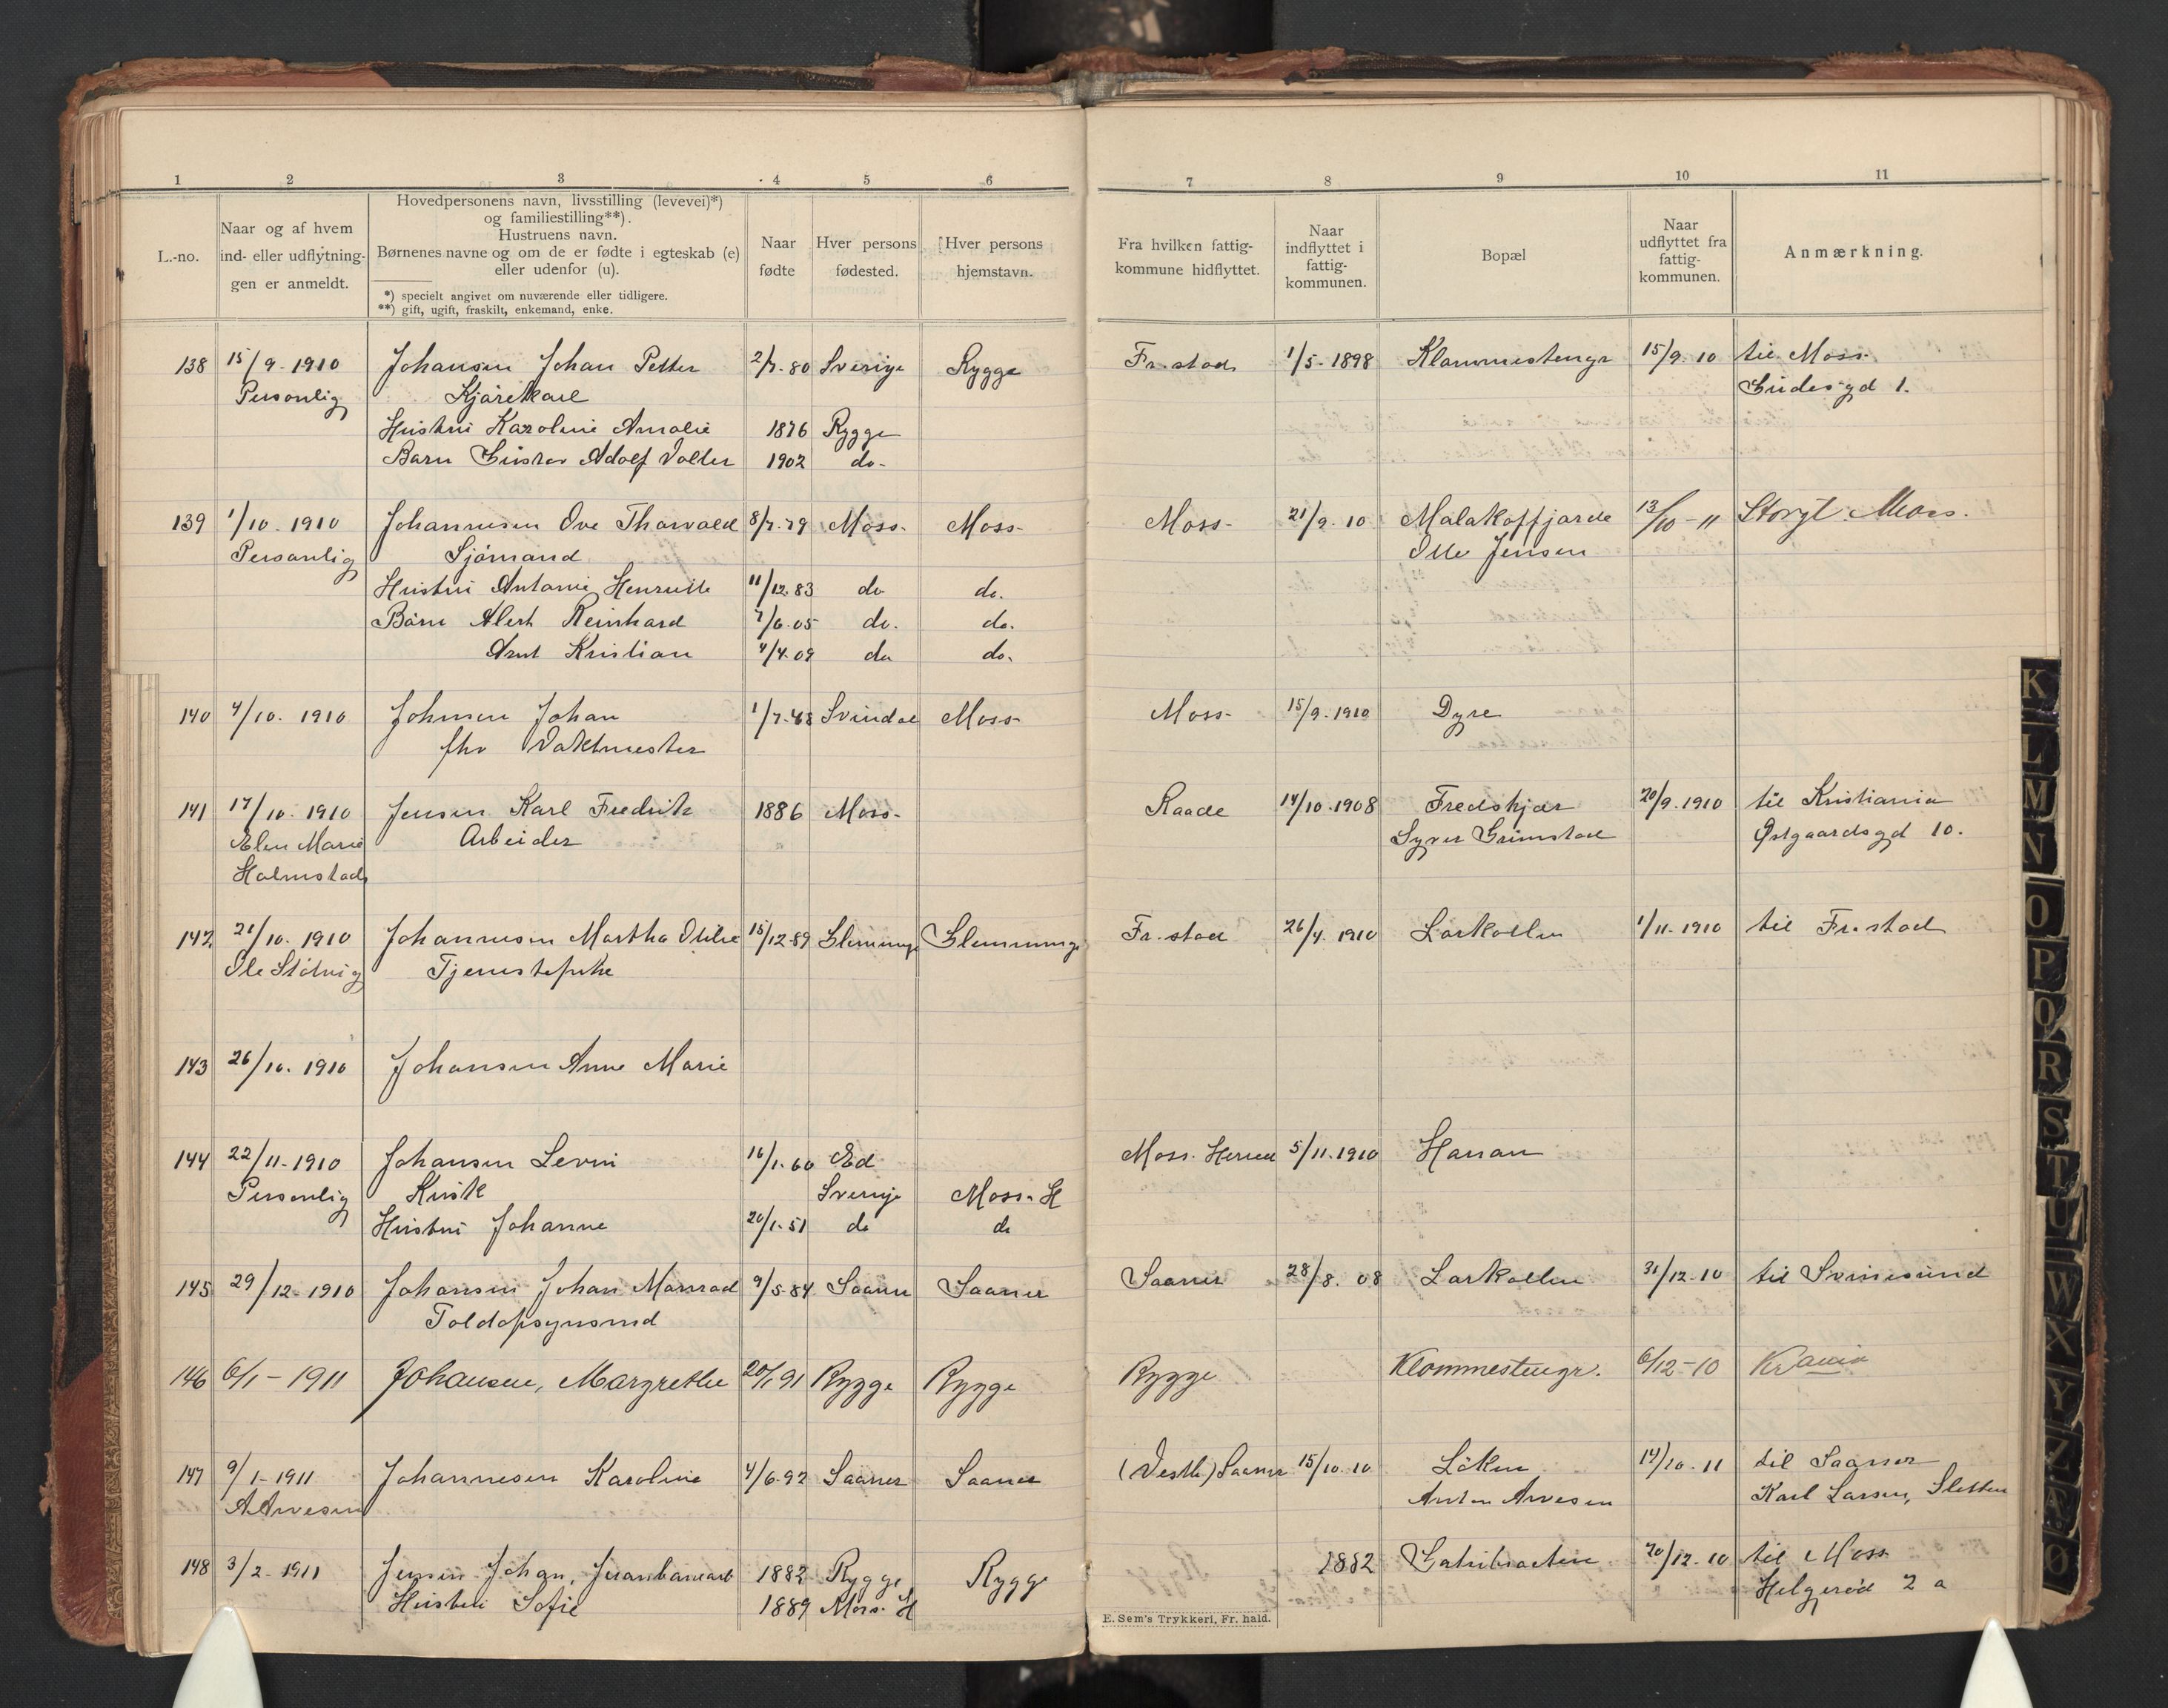 1 2 3 4 5 6 7 8 9 10 11
L.-no.
Naar og af hvem
ind- eller udflytnin-
gen er anmeldt.
Hovedpersonens navn, livsstilling (levevei)*)
og familiestilling**).
Hustruens navn.
Børnenes navne og om de er fødte i egteskab (e)
eller udenfor (u).
*) specielt angivet om nuværende eller tidligere.
**) gift, ugift, fraskilt, enkemand, enke.
Naar
fødte
Hver persons
fødested.
Hver persons
hjemstavn.
Fra hvilken fattig-
kommune hidflyttet.
Naar
indflyttet i
fattig-
kommunen.
Bopæl
Naar
udflyttet fra
fattig-
kommunen.
Anmærkning.
138 15/9. 1910 Johansen Johan Petter 2/7-80 Sverige Rygge Fr.stad 1/5-1898 Klommestengr 15/9. 10 til Moss
Personlig Kjørekarl Gudesgd 1.
Hustru Karoline Amalie 1876 Rygge
Barn Gustav Adolf Valter 1902 do-
139 1/10. 1910 Johannesen Ove Thorvald 8/7-79 Moss- Moss- Moss- 21/9. 10 Malakoffjorde 13/10-11 Storgt. Moss.
Personlig Sjömand Olle Jensen
Hustru Antonie Henriette 11/12.83 do do.
Börn Alert Reinhard 7/6.05 do. do.
Arnt Kristian 4/4.09 do do.
140 4/10. 1910 Johnsen Johan 1/7-48 Svindal Moss- Moss- 15/9.1910 Dyre
fhv Vaktmester
141 17/10. 1910 Jensen Karl Fredrik 1886 Moss- Raade 14/10.1908 Fredskjær 20/9.1910 til Kristiania
Elen Marie Arbeider Syver Grimstad Østgaardsgd 10.
Holmstad
142 21/10. 1910 Johannesen Martha Otilie 15/12-89 Glemminge Glemminge Fr.stad 26/4. 1910 Larkollen 1/11-1910 til Fr.stad
Ole Slidvig Tjenestepike
143 26/10. 1910 Johansen Anne Marie
144 22/11-1910 Johansen Levin 16/1-60 Ed Moss. Herred 5/11.1910 Hanan
Personlig Kusk Sverige Moss-H
Hustru Johanne 20/1-51 do do
145 29/12-1910 Johansen Johan Manrad 9/5-84 Saaner Saaner Saaner 28/8. 08 Larkollen 31/12-10 til Svinesund
Toldopsynsmd
146 6/1-1911 Johansen, Margrethe 20/1 91 Rygge Rygge Rygge Klommestengr. 6/12-10 Krania
147 9/1-1911 Johannesen Karoline 4/6-92 Saaner Saaner (Vestb)Saaner 15/10.10 Löken 14/10-11 til Saaner
A Arvesen Anton Arvesen Karl Larsen, Sletten
148 3/2-1911 Jensen Johan, Jernbanearb 1882 Rygge Rygge 1882 20/12-10 til Moss
Hustru Sofie 1889 Moss-H Helgerød 2 a
E. Sem's Trykkeri, Fr. hald.
K
L
M
N
O
P
Q
R
S
T
U
W
X
Y
Z
Æ
Ø